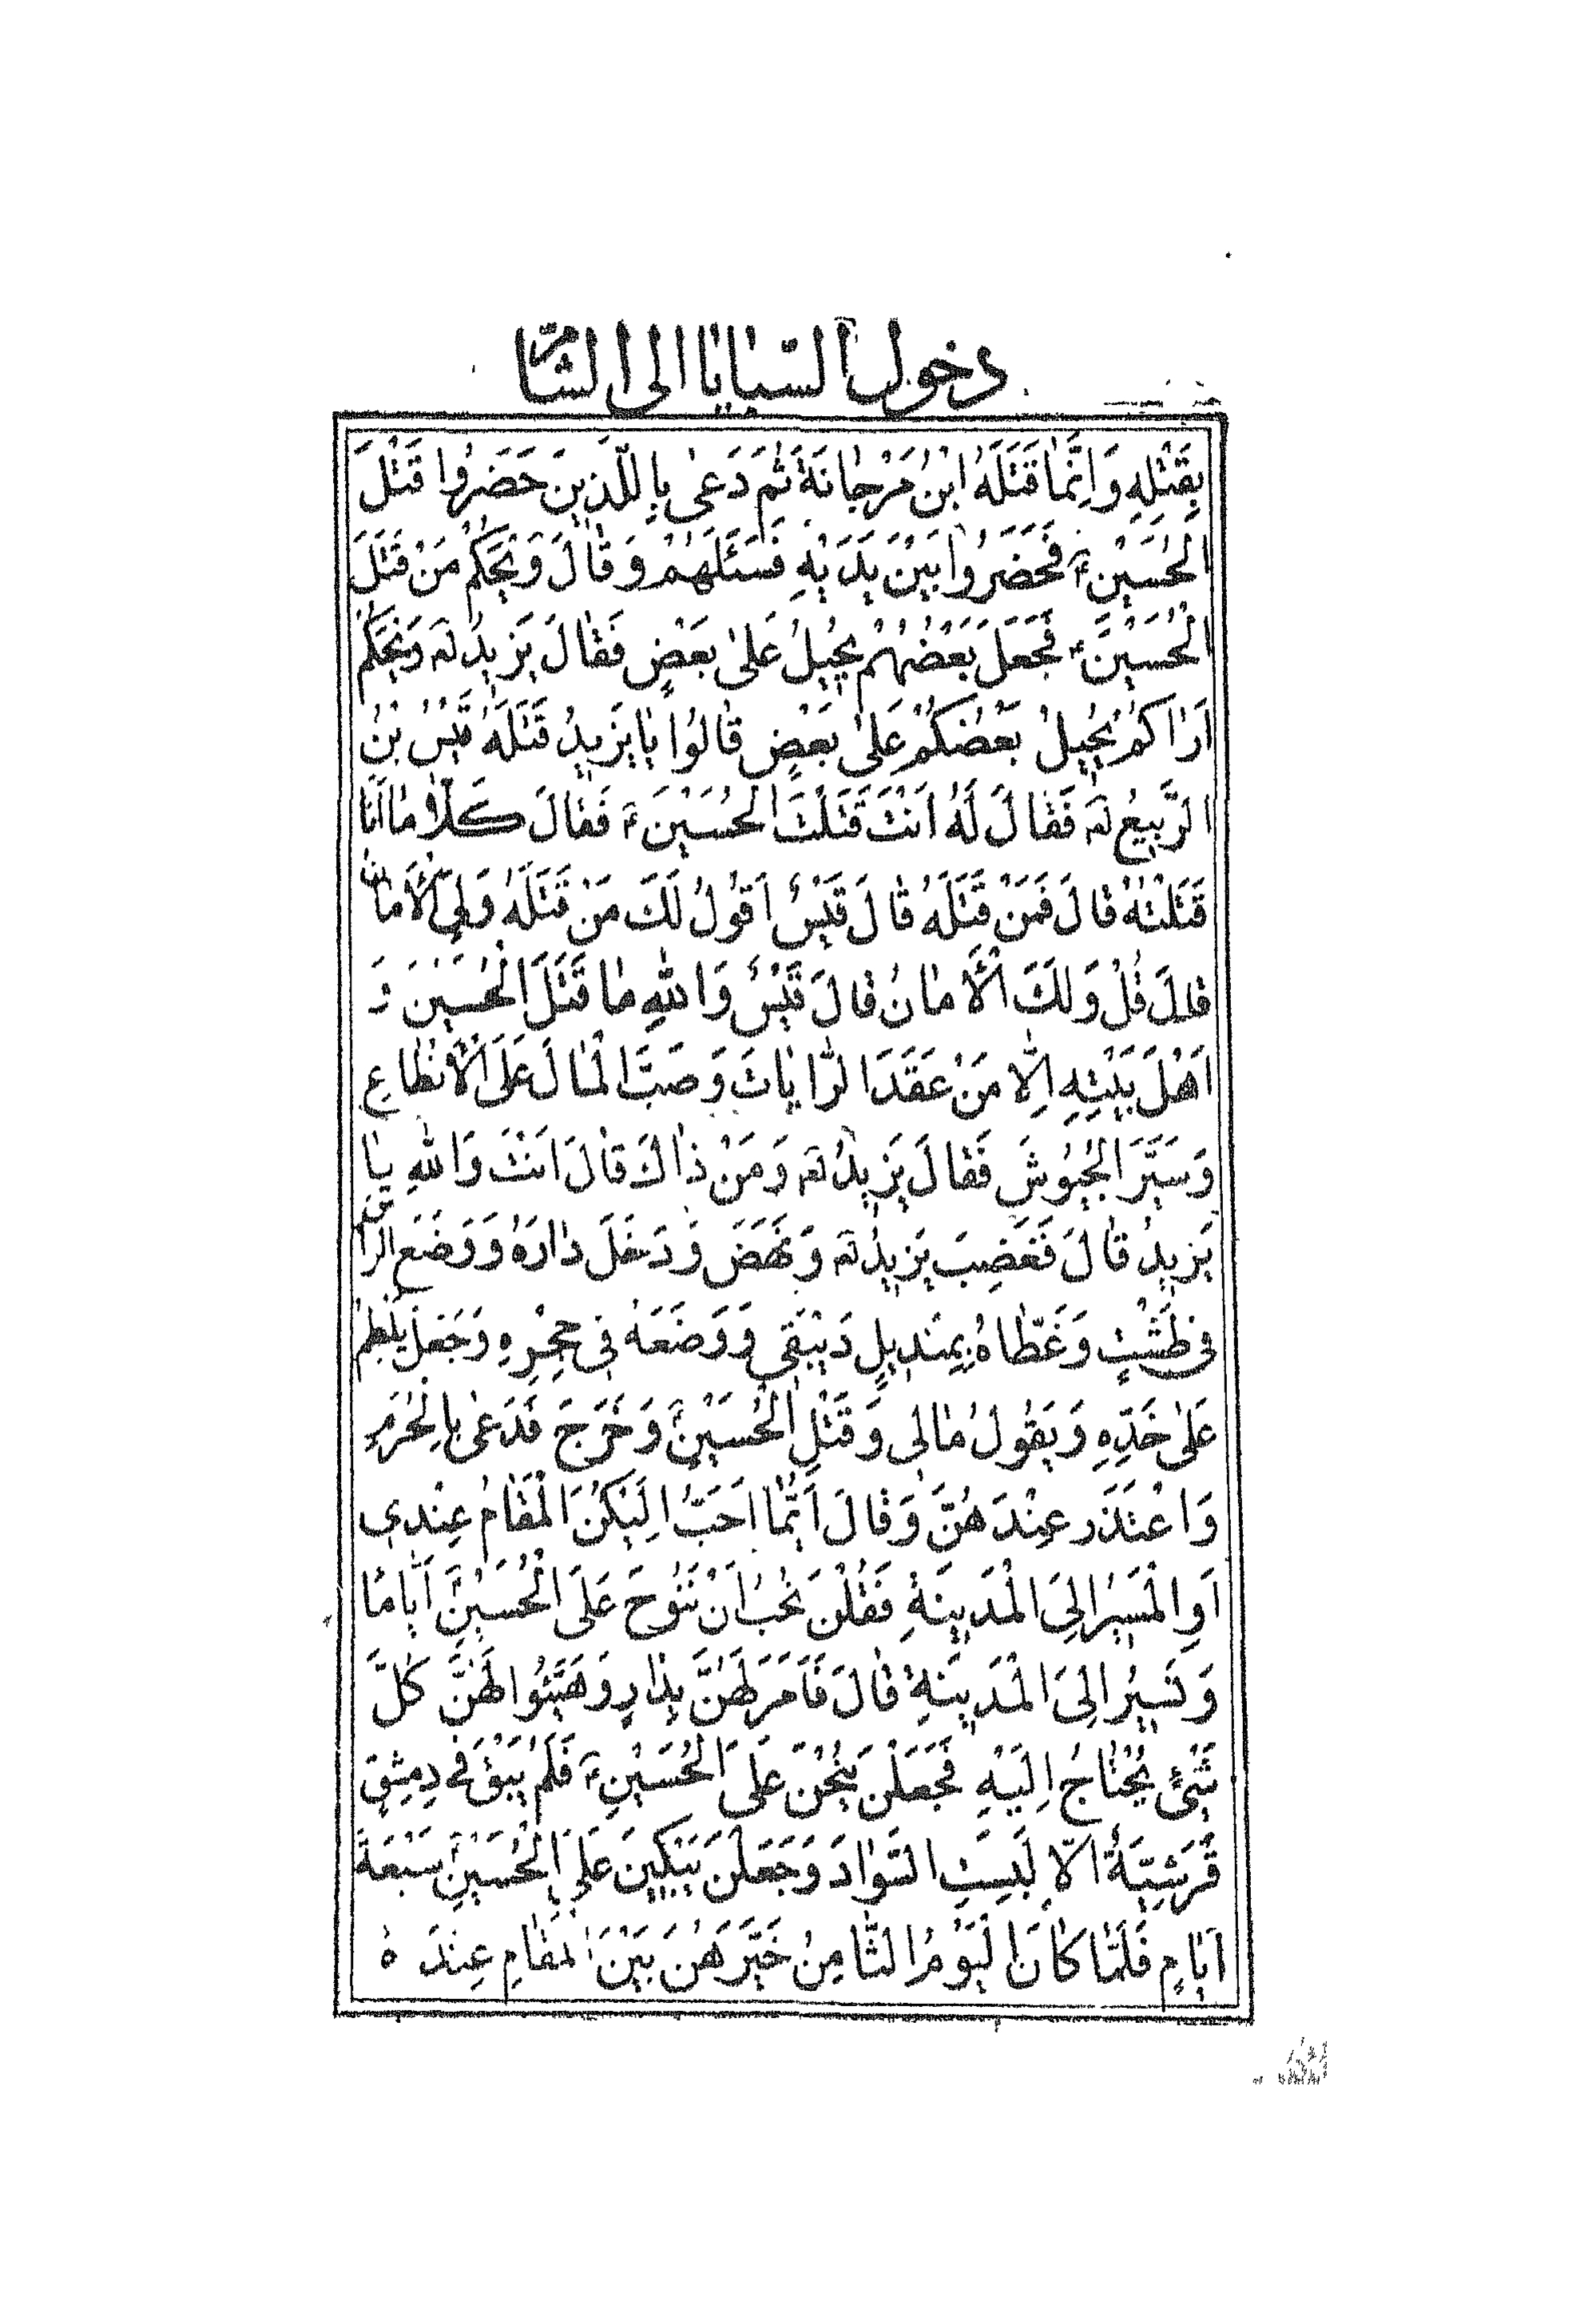 دخول السبايا الى الشام
بِقَتْلِهِ وَاِنَّمٰا قَتَلَهُ ابْنُ مَرْجٰانَةَ ثُمَّ دَعٰى بِالَّذِينَ حَضَرُوا قَتْلَ
الْحُسَيْنِ ع فَحَضَرُوا بَيْنَ يَدَيْهِ فَسَئَلَهُمْ وَ قٰالَ وَيْحَكُمْ مَنْ قَتَلَ
الْحُسَيْنَ ع فَجَعَلَ بَعْضُهُمْ يُحِيلُ عَلىٰ بَعْضٍ فَقٰالَ يَزِيدُ لع وَيْحَكُمْ
اَرٰاكُمْ يُحِيلُ بَعْضُكُمْ عَلىٰ بَعْضٍ قٰالُوا يٰا يَزِيدُ قَتَلَهُ قَيْسُ بْنُ
الرَّبِيعُ لع فَقٰالَ لَهُ اَنْتَ قَتَلْتَ الْحُسَيْنَ ع فَقٰالَ كَلّاٰ مٰا اَنَا
قَتَلْتُهُ قٰالَ فَمَنْ قَتَلَهُ قٰالَ قَيْسٌ اَقُولُ لَكَ مَنْ قَتَلَهُ وَلِىَ الْأَمٰانُ
قٰالَ قُلْ وَلَكَ الْأَمٰانُ قٰالَ قَيْسٌ وَاللهِ مٰا قَتَلَ الْحُسَيْنَ وَ
اَهْلَ بَيْتِهِ اِلّٰا مَنْ عَقَدَ الرّٰايٰاتَ وَ صَبَّ الْمٰالَ عَلَى الْأَنْطٰاعِ
وَ سَيَّرَ الْجُيُوشَ فَقٰالَ يَزِيدُ لع وَ مَنْ ذٰاكَ قٰالَ اَنْتَ وَاللهِ يٰا
يَزِيدُ قٰالَ فَغَضِبَ يَزِيدُ لع وَ نَهَضَ وَ دَخَلَ دٰارَهُ وَ وَضَعَ الرَّأْسَ
فى طَشْتٍ وَ غَطّٰاهُ بِمِنْدِيلٍ دَيْبَقىٍ وَ وَضَعَهُ فى حِجْرِهِ وَ جَعَلَ يَلْطِمُ
عَلىٰ خَدِّهِ وَ يَقُولُ مٰالى وَ قَتْلِ الْحُسَيْنِ ع وَ خَرَجَ فَدَعىٰ بِالْحُرَمِ
وَ اعْتَذَرَ عِنْدَهُنَّ وَ قٰالَ اَيُّمٰا اَحَبُّ اِلَيْكُنَّ الْمَقٰامُ عِنْدِى
اَوِ الْمَسِيرُ اِلَى الْمَدِينَةِ فَقُلْنَ نُحِبُ اَنْ نَنُوحَ عَلَى الْحُسَيْنِ ع اَيّٰامًا
وَ نَسِيرُ اِلىَ الْمَدِينَةِ قٰالَ فَاَمَرَ لَهُنَّ بِدٰارٍ وَ هَيَّئُوا لَهُنَّ كُلَّ
شَىْءٍ يُحْتٰاجُ اِلَيْهِ فَجَعَلْنَ يَنُحْنَ عَلَى الْحُسَيْنِ ع فَلَمْ يَبْقَ فى دِمِشْقَ
قُرَشِيَّةٌ اِلّا لَبِسَتِ السَّوٰادَ وَ جَعَلْنَ يَبْكِينَ عَلَى الْحُسَيْنِ ع سَبْعَةَ
اَيّٰامٍ فَلَمّٰا كٰانَ الْيَوْمُ الثّٰامِنُ خَيَّرَهُنَ بَيْنَ الْمَقٰامِ عِنْدَهُ